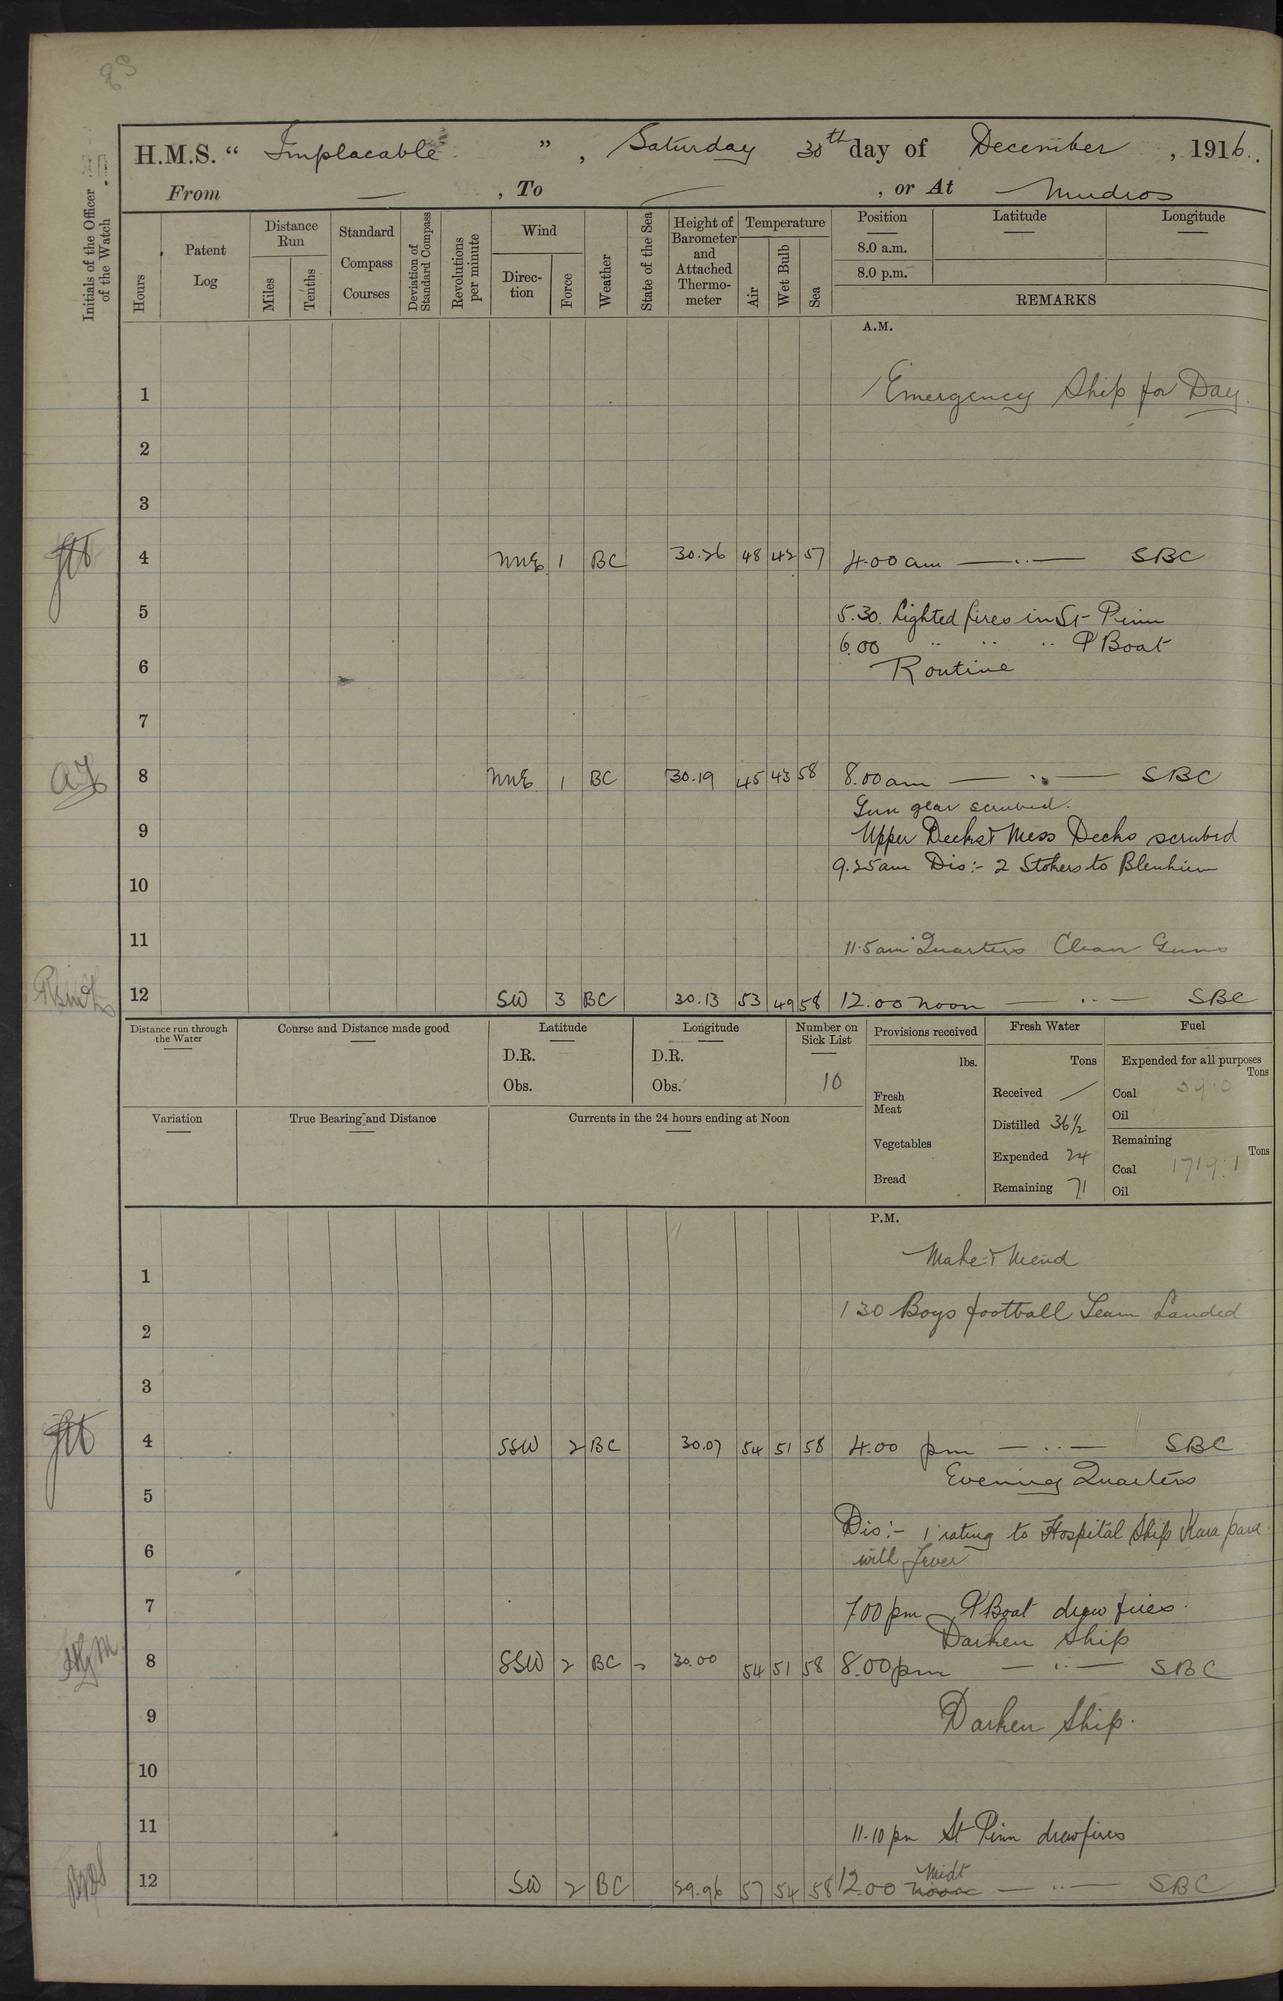 H.M.S. " Implacable " , Saturday 30th day of December , 1916.
From — , To — , or At Mudros
Initials of the Officer of the Watch
Hours
Patent Log
Distance Run
Miles
Tenths
Standard Compass Courses
Deviation of Standard Compass
Revolutions per minute
Wind
Direc-tion
Force
Weather
State of the Sea
Height of Barometer and Attached Thermo-meter
Temperature
Air
Wet Bulb
Sea
Position Latitude Longitude
8.0 a.m.
8.0 p.m.
REMARKS
A.M.
1 Emergency Ship for Day.
2
3
4 NNE 1 BC 30.26 48 42 57 4.00 am — ·· — SBC
5 5.30. Lighted fires in St Pinn
6.00 " " " P Boat
6 Routine
7
8 NNE 1 BC 30.19 45 43 58 8.00 am — ·· — SBC
Gun gear scrubed.
9 Upper Decks & Mess Decks scrubed
9.25am Dis:- 2 Stokers to Blenheim
10
11 11.5am Quarters Clean Guns
12 SW 3 BC 30.13 53 49 58 12.00 noon — ·· — SBC
Distance run through the Water
Course and Distance made good
Latitude
D.R.
Obs.
Longitude
D.R.
Obs.
Number on Sick List
10
Provisions received
lbs.
Fresh Meat
Vegetables
Bread
Fresh Water
Tons
Received /
Distilled 36½
Expended 24
Remaining 71
Fuel
Expended for all purposes
Tons
Coal
Oil
Remaining
Tons
Coal 1719.1
Oil
Variation
True Bearing and Distance
Currents in the 24 hours ending at Noon
P.M.
Make & Mend
1
1 30 Boys football Team Landed
2
3
4 SSW 2 BC 30.07 54 51 58 4.00 pm — ·· — SBC
Evening Quarters
5
Dis:- 1 rating to Hospital Ship Karapara
6 with fever
7 7.00 pm P Boat drew fires.
Darken Ship
8 SSW 2 BC 30.00 54 51 58 8.00 pm — ·· — SBC
9 Darken Ship.
10
11 11.10 pm St Pinn drew fires
12 SW 2 BC 29.96 57 54 58 12.00 noon Midt — ·· — SBC